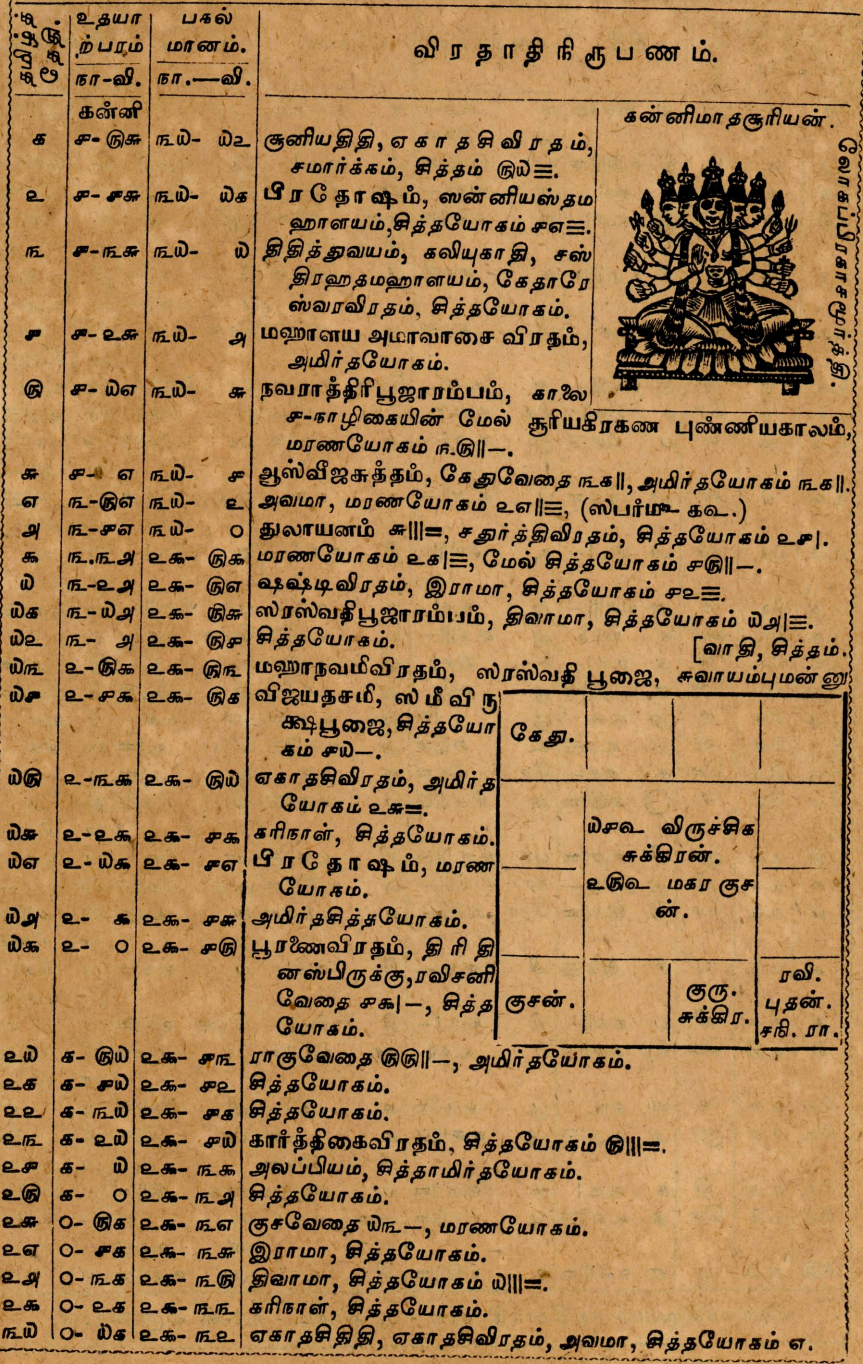 தமிழ்த் தேதி. உதயா ற்பரம் நா-வி. பகல் மானம். நா.—வி. விரதாதிநிரூபணம்.
கன்னி
கன்னிமாதசூரியன்.
க ௪-௫௬ ௩௰- ௰௨ சூனியதிதி, ஏகாதசிவிரதம்,
சமார்க்கம், சித்தம் ௫௰≡.
௨ ௪-௪௬ ௩௰- ௰௧ பிரதோஷம், ஸன்னியஸ்தம
ஹாளயம்,சித்தயோகம் ௪௭≡.
௩ ௪-௩௬ ௩௰- ௰ திதித்துவயம், கலியுகாதி, சஸ்
திரஹதமஹாளயம், கேதாரே
ஸ்வரவிரதம், சித்தயோகம்.
௪ ௪-௨௬ ௩௰- ௮ மஹாளய அமாவாசை விரதம்,
அமிர்தயோகம்.
௫ ௪-௰௭ ௩௰- ௬ நவராத்திரிபூஜாரம்பம், காலை
௪-நாழிகையின் மேல் சூரியகிரகண புண்ணியகாலம்,
மரணயோகம் ௩௫||—.
௬ ௪- ௭ ௩௰- ௪ ஆஸ்வீஜசுத்தம், கேதுவேதை ௩௧||, அமிர்தயோகம் ௩௧||.
௭ ௩-௫௭ ௩௰- ௨ அவமா, மரணயோகம் ௨௭||≡,
௮ ௩-௪௭ ௩௰- ௦ துலாயனம் ௬|||=, சதுர்த்திவிரதம், சித்தயோகம் ௨௪|.
௯ ௩.௩௮ ௨௯- ௫௯ மரணயோகம் ௨௧|≡, மேல் சித்தயோகம் ௪௫||—.
௰ ௩-௨௮ ௨௯- ௫௭ ஷஷ்டிவிரதம், இராமா, சித்தயோகம் ௪௨≡.
௰௧ ௩-௰௮ ௨௯- ௫௬ ஸரஸ்வதிபூஜாரம்பம், திவாமா, சித்தயோகம் ௰௮|≡.
௰௨ ௩- ௮ ௨௯- ௫௪ சித்தயோகம். [வாதி, சித்தம்.
௰௩ ௨-௫௯ ௨௯- ௫௩ மஹாநவமிவிரதம், ஸரஸ்வதி பூஜை, சுவாயம்புமன்னு
௰௪ ௨-௪௯ ௨௯- ௫௧ விஜயதசமி, ஸமீவிரு
க்ஷபூஜை,சித்தயோ
கம் ௪௰—.
௰௫ ௨-௩௯ ௨௯- ௫௰ ஏகாதசிவிரதம், அமிர்த
யோகம் ௨௬=.
௰௬ ௨-௨௯ ௨௯- ௪௯ கரிநாள், சித்தயோகம்.
௰௭ ௨-௰௯ ௨௯- ௪௭ பிரதோஷம், மரண
யோகம்.
௰௮ ௨- ௯ ௨௯- ௪௬ அமிர்தசித்தயோகம்.
௰௯ ௨- ௦ ௨௯- ௪௫ பூரணைவிரதம், திரிதி
னஸ்பிருக்கு,ரவிசனி
வேதை ௪௯|—, சித்த
யோகம்.
கேது.
௰௪௳ விருச்சிக
சுக்கிரன்.
௨௫௳ மகர குச
ன்.
குசன்.
குரு.
சுக்கிர.
ரவி.
புதன்.
சநி. ரா.
௨௰ ௧- ௫௰ ௨௯- ௪௩ ராகுவேதை ௫௫||—, அமிர்தயோகம்.
௨௧ ௧- ௪௰ ௨௯- ௪௨ சித்தயோகம்.
௨௨ ௧- ௩௰ ௨௯- ௪௧ சித்தயோகம்.
௨௩ ௧- ௨௰ ௨௯- ௪௰ கார்த்திகைவிரதம், சித்தயோகம் ௫|||=.
௨௪ ௧- ௰ ௨௯- ௩௯ அலப்பியம், சித்தாமிர்தயோகம்.
௨௫ ௧- ௦ ௨௯- ௩௮ சித்தயோகம்.
௨௬ ௦- ௫௧ ௨௯- ௩௭ குசவேதை ௰௩—, மரணயோகம்.
௨௭ ௦- ௪௧ ௨௯- ௩௬ இராமா, சித்தயோகம்.
௨௮ ௦- ௩௧ ௨௯- ௩௫ திவாமா, சித்தயோகம் ௰|||=.
௨௯ ௦- ௨௧ ௨௯- ௩௩ கரிநாள், சித்தயோகம்.
௩௰ ௦- ௰௧ ௨௯- ௩௨ ஏகாதசிதிதி, ஏகாதசிவிரதம், அவமா, சித்தயோகம் ௭.